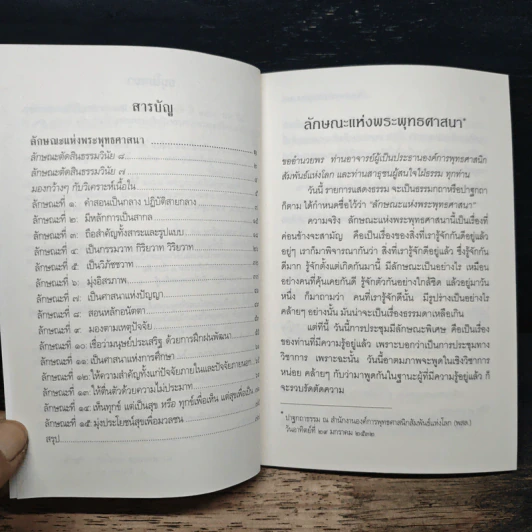 สารบัญ
ลักษณะแห่งพระพุทธศาสนา
ลักษณะตัดสินธรรมวินัย ๘
ลักษณะตัดสินธรรมวินัย ๗
มองกว้างๆ กับวิเคราะห์เนื้อใน
ลักษณะที่ ๑. คำสอนเป็นกลาง ปฏิบัติสายกลาง
ลักษณะที่ ๒. มีหลักการเป็นสากล
ลักษณะที่ ๓. ถือสำคัญทั้งสาระและรูปแบบ
ลักษณะที่ ๔. เป็นกรรมวาท กิริยวาท วิริยวาท
ลักษณะที่ ๕. เป็นวิภัชชวาท
ลักษณะที่ ๖. มุ่งอิสรภาพ
ลักษณะที่ ๗. เป็นศาสนาแห่งปัญญา
ลักษณะที่ ๘. สอนหลักอนัตตา
ลักษณะที่ ๙. มองตามเหตุปัจจัย
ลักษณะที่ ๑๐. เชื่อว่ามนุษย์ประเสริฐ ด้วยการฝึกฝนพัฒนา
ลักษณะที่ ๑๑. เป็นศาสนาแห่งการศึกษา
ลักษณะที่ ๑๒. ให้ความสำคัญทั้งแก่ปัจจัยภายในและปัจจัยภายนอก
ลักษณะที่ ๑๓. ให้ตื่นตัวด้วยความไม่ประมาท
ลักษณะที่ ๑๔. เห็นทุกข์ แต่เป็นสุข หรือ ทุกข์เพื่อเห็น แต่สุขเพื่อเป็น
ลักษณะที่ ๑๕. มุ่งประโยชน์สุขเพื่อมวลชน
สรุป
ลักษณะแห่งพระพุทธศาสนา*
ขออำนวยพร ท่านอาจารย์ผู้เป็นประธานองค์การพุทธศาสนิก
สัมพันธ์แห่งโลก และท่านสาธุชนผู้สนใจใฝ่ธรรม ทุกท่าน
วันนี้ รายการแสดงธรรม จะเป็นธรรมกถาหรือปาฐกถา
ก็ตาม ได้กำหนดชื่อไว้ว่า "ลักษณะแห่งพระพุทธศาสนา"
ความจริง ลักษณะแห่งพระพุทธศาสนานี้เป็นเรื่องที่
ค่อนข้างจะสามัญ คือเป็นเรื่องของสิ่งที่เรารู้จักกันดีอยู่แล้ว
อยู่ๆ เราก็มาพิจารณากันว่า สิ่งที่เรารู้จักดีอยู่แล้ว ซึ่งรู้จักกัน
ดีมาก รู้จักตั้งแต่เกิดกันมานี้ มีลักษณะเป็นอย่างไร เหมือน
อย่างคนที่คุ้นเคยกันดี รู้จักตัวกันอย่างใกล้ชิด แล้วอยู่มาวัน
หนึ่ง ก็มาถามว่า คนที่เรารู้จักดีนั้น มีรูปร่างเป็นอย่างไร
คล้ายๆ อย่างนั้น มันน่าจะเป็นเรื่องธรรมดาเหลือเกิน
แต่ทีนี้ วันนี้การประชุมมีลักษณะพิเศษ คือเป็นเรื่อง
ของท่านที่มีความรู้อยู่แล้ว เพราะบอกว่าเป็นการประชุมทาง
วิชาการ เพราะฉะนั้น วันนี้อาตมภาพจะพูดในเชิงวิชาการ
หน่อย คล้ายๆ กับว่ามาพูดกันในฐานะผู้ที่มีความรู้อยู่แล้ว ก็
จะรวบรัดตัดความ
* ปาฐกถาธรรม ณ สำนักงานองค์การพุทธศาสนิกสัมพันธ์แห่งโลก (พสล.)
วันอาทิตย์ที่ ๒๙ มกราคม ๒๕๓๒